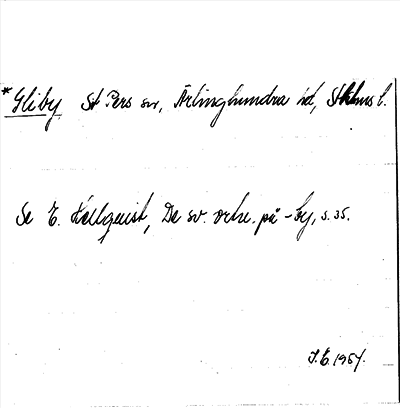 *Gliby, St Pers sn, Ärlinghundra hd, Sthlms l.
Se E. Hellquist, De sv. ortn. på -by, s. 35.
J.E. 1957.